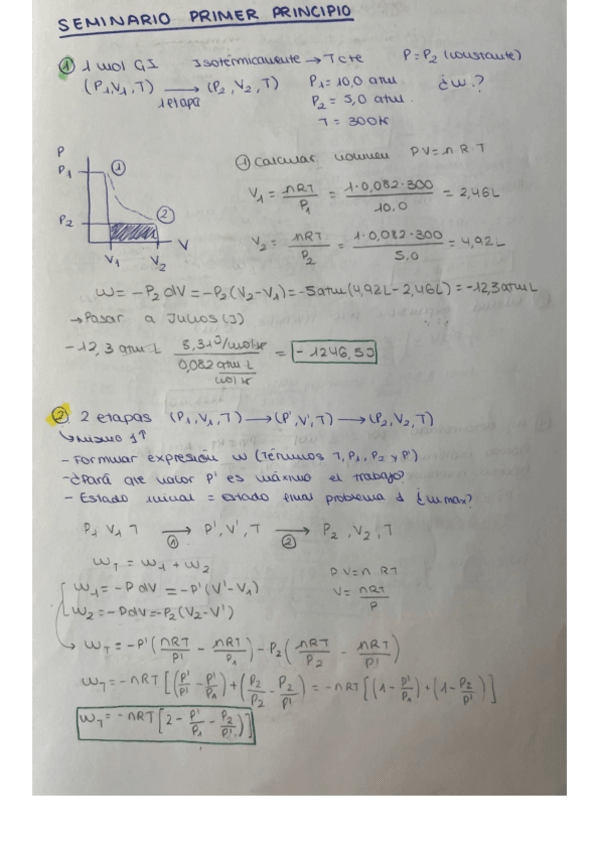 SEMINARIO PRIMER PRINCIPIO
① 1 mol G.I Isotérmicamente → T cte P = P₂ (constante)
(P₁,V₁,T) → (P₂,V₂,T) P₁ = 10,0 atm ¿w?
1 etapa P₂ = 5,0 atm
T = 300K
P
P₁ ①
P₂ ②
V₁ V₂ V
① Calcular volumen PV = n R · T
V₁ = nRT/P₁ = 1·0,082·300/10.0 = 2,46L
V₂ = nRT/P₂ = 1·0,082·300/5,0 = 4,92L
w = -P₂ dV = -P₂(V₂-V₁) = -5atm(4,92L - 2,46L) = -12,3 atm L
→ Pasar a Julios (J)
-12,3 atm L 8,31J/molK / 0,082 atm L/mol K = -1246,5J
② 2 etapas (P₁,V₁,T) → (P',V',T) → (P₂,V₂,T)
↳ mismo 1↑
- Formular expresión w (Términos T, P₁, P₂ y P')
- ¿Para que valor P' es máximo el trabajo?
- Estado inicial = estado final problema 1 ¿w max?
P₁ V₁ T →① P', V', T →② P₂, V₂, T
w_T = w₁ + w₂ PV = n RT
w₁ = -P dV = -P'(V'-V₁) V = nRT/P
w₂ = -P dV = -P₂(V₂-V')
→ w_T = -P'(nRT/P' - nRT/P₁) - P₂(nRT/P₂ - nRT/P')
w_T = -nRT[(P'/P' - P'/P₁) + (P₂/P₂ - P₂/P')] = -nRT[(1 - P'/P₁) + (1 - P₂/P')]
w_T = -nRT[2 - P'/P₁ - P₂/P')]